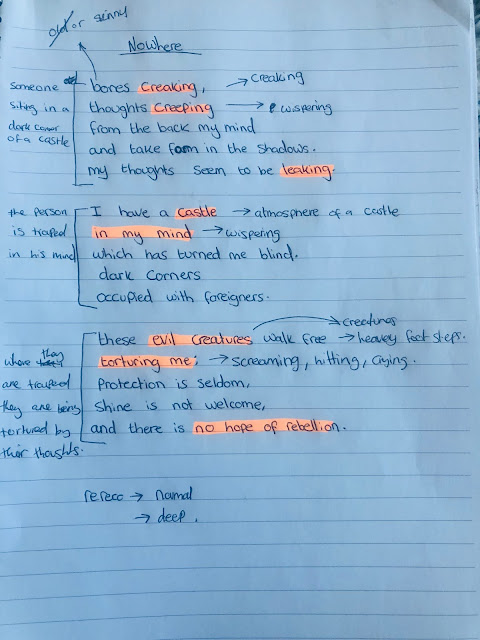 old or skinny
Nowhere
someone
siting in a
dark corner
of a castle
bones Creaking, → creaking
thoughts Creeping → wispering
from the back my mind
and take form in the shadows.
my thoughts seem to be leaking.
the person
is traped
in his mind
I have a castle → atmosphere of a castle
in my mind → wispering
which has turned me blind.
dark corners
occupied with foreigners.
where they
are trauped
they are being
tortured by
their thoughts.
creetures
these evil creatures walk free → heavey foot steps.
torturing me; → screaming, hitting, crying.
Protection is seldom,
Shine is not welcome,
and there is no hope of rebellion.
→ normal
→ deep.